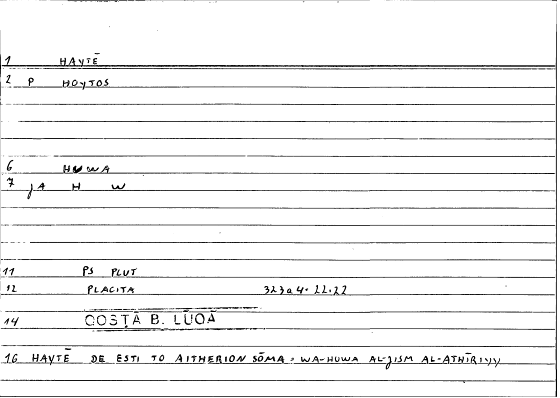 1 HAYTĒ
2 P HOYTOS
6 HUWA
7 jA H W
11 PS PLUT
12 PLACITA 323a4. 22.22
14 COSṬĀ B. LŪQĀ
16 HAYTĒ DE ESTI TO AITHERION SŌMA, WA-HUWA AL-JISM AL-ATHĪRIYY